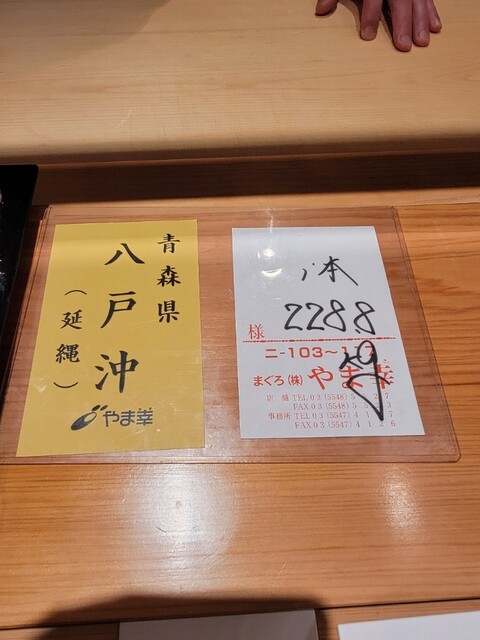 青森県
八戸沖
(延縄)
やま幸
本
様
2288
まぐろ(株) やま幸
店舗 TEL03(5548)
FAX03(5548)
事務所 TEL03(5547)
FAX03(5547)4126